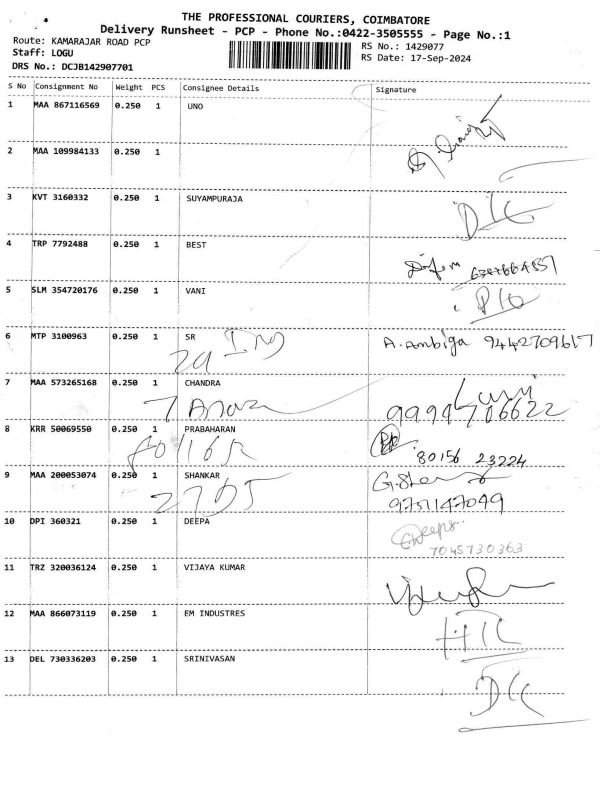 THE PROFESSIONAL COURIERS, COIMBATORE
Delivery Runsheet - PCP - Phone No.:0422-3505555 - Page No.:1
Route: KAMARAJAR ROAD PCP
RS No.: 1429077
Staff: LOGU
RS Date: 17-Sep-2024
DRS No.: DCJB142907701
S No Consignment No Weight PCS Consignee Details Signature
1 MAA 867116569 0.250 1 UNO
2 MAA 109984133 0.250 1
3 KVT 3160332 0.250 1 SUYAMPURAJA
4 TRP 7792488 0.250 1 BEST
5 SLM 354720176 0.250 1 VANI
6 MTP 3100963 0.250 1 SR A. Ambiga 9442709617
7 MAA 573265168 0.250 1 CHANDRA
9994706622
8 KRR 50069550 0.250 1 PRABAHARAN
80156 23224
9 MAA 200053074 0.250 1 SHANKAR
9751147049
10 DPI 360321 0.250 1 DEEPA
7045730363
11 TRZ 320036124 0.250 1 VIJAYA KUMAR
12 MAA 866073119 0.250 1 EM INDUSTRES
13 DEL 730336203 0.250 1 SRINIVASAN